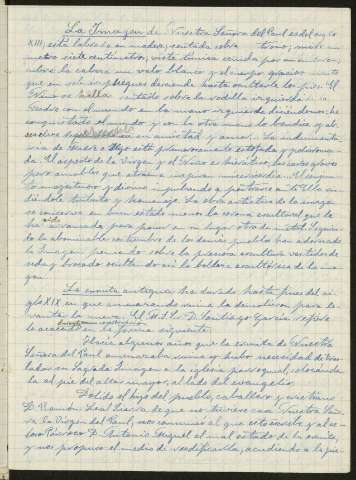 La Imagen de Nuestra Señora del Raul es del siglo
XIII, está labrada en madera, sentada sobre trono; mide un
metro siete centímetros; viste túnica ceñida por un cinturón,
cubre la cabeza un velo blanco y el cuerpo gracioso manto
que en sobrios pliegues desciende hasta ocultarle los pies. El
Niño se halla sentado sobre la rodilla izquierda
con el mundo en la mano izquierda diciéndonos: he
conquistado el mundo y con la otra mano le bendice y al
amistad y amor. La indumenta-
ria de Madre e Hijo está primorosamente estofada y policroma-
da. El aspecto de la Virgen y el Niño es hierático, los rostros graves
pero amables que atraen e inspiran misericordia.
y devoción impulsando a postrarse ante Ella rin-
diéndole tributo y homenaje. La obra artística de la imagen
se conserva en buen estado menos la corona escultural que le
fué arrancada para poner en su lugar otra de metal siguien-
do la abominable costumbre de los demás pueblos han adornado
la Imagen poniendo sobre la primorosa escultura vestidos de
seda y brocado ocultando así la belleza escultórica de la ima-
gen.
La ermita antigua ha durado hasta fines del si-
glo XIX en que amenazando ruina la demolieron para le-
vantar la nueva. El M. I. Sr. D. Santiago García refiere
lo acaecido en la forma siguiente:
Hacía algunos años que la ermita de Nuestra
Señora del Raul amenazaba ruina y hubo necesidad de tras-
ladar su Sagrada Imagen a la iglesia parroquial, colocando-
la al pie del altar mayor, al lado del evangelio.
Dolido el hijo del pueblo, caballero y cristiano
D. Ramón de que no tuviera casa Nuestra Seño-
ra la Virgen del Raul, nos comunicó al que esto escribe y al ce-
loso Párroco D. Antonio Miguel el mal estado de la ermita,
y nos propuso el medio de reedificarla, acudiendo a la pie-